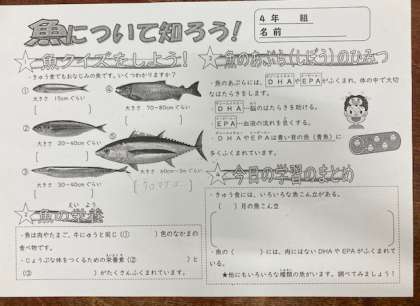 魚について知ろう!
4年 組
名前
魚クイズをしよう!
・きゅう食でもおなじみの魚です。いくつわかりますか?
①
大きさ 15cmぐらい
②
大きさ 20~40cmぐらい
③
大きさ 30~40cmぐらい
④
大きさ 70~80cmぐらい
⑤
大きさ 60cm~3mぐらい
魚の栄養
えいよう
・魚は肉やたまご、牛にゅうと同じ(① )色のなかまの
食べ物です。
・じょうぶな体をつくるための栄養素(② )と
(③ )がたくさんふくまれています。
魚のあぶら(しぼう)のひみつ
・魚のあぶらには、DHAやEPAがふくまれ、体の中で大切
なはたらきをします。
DHA…脳のはたらきを助ける。
EPA…血液の流れを良くする。
・DHAやEPAは青い背の魚(青魚)に
多くふくまれています。
今日の学習のまとめ
・きゅう食には、いろいろな魚こん立がある。
( )月の魚こん立
・魚の( )には、肉にはないDHAやEPAがふくまれてい
る。
★他にもいろいろな種類の魚がいます。調べてみましょう!